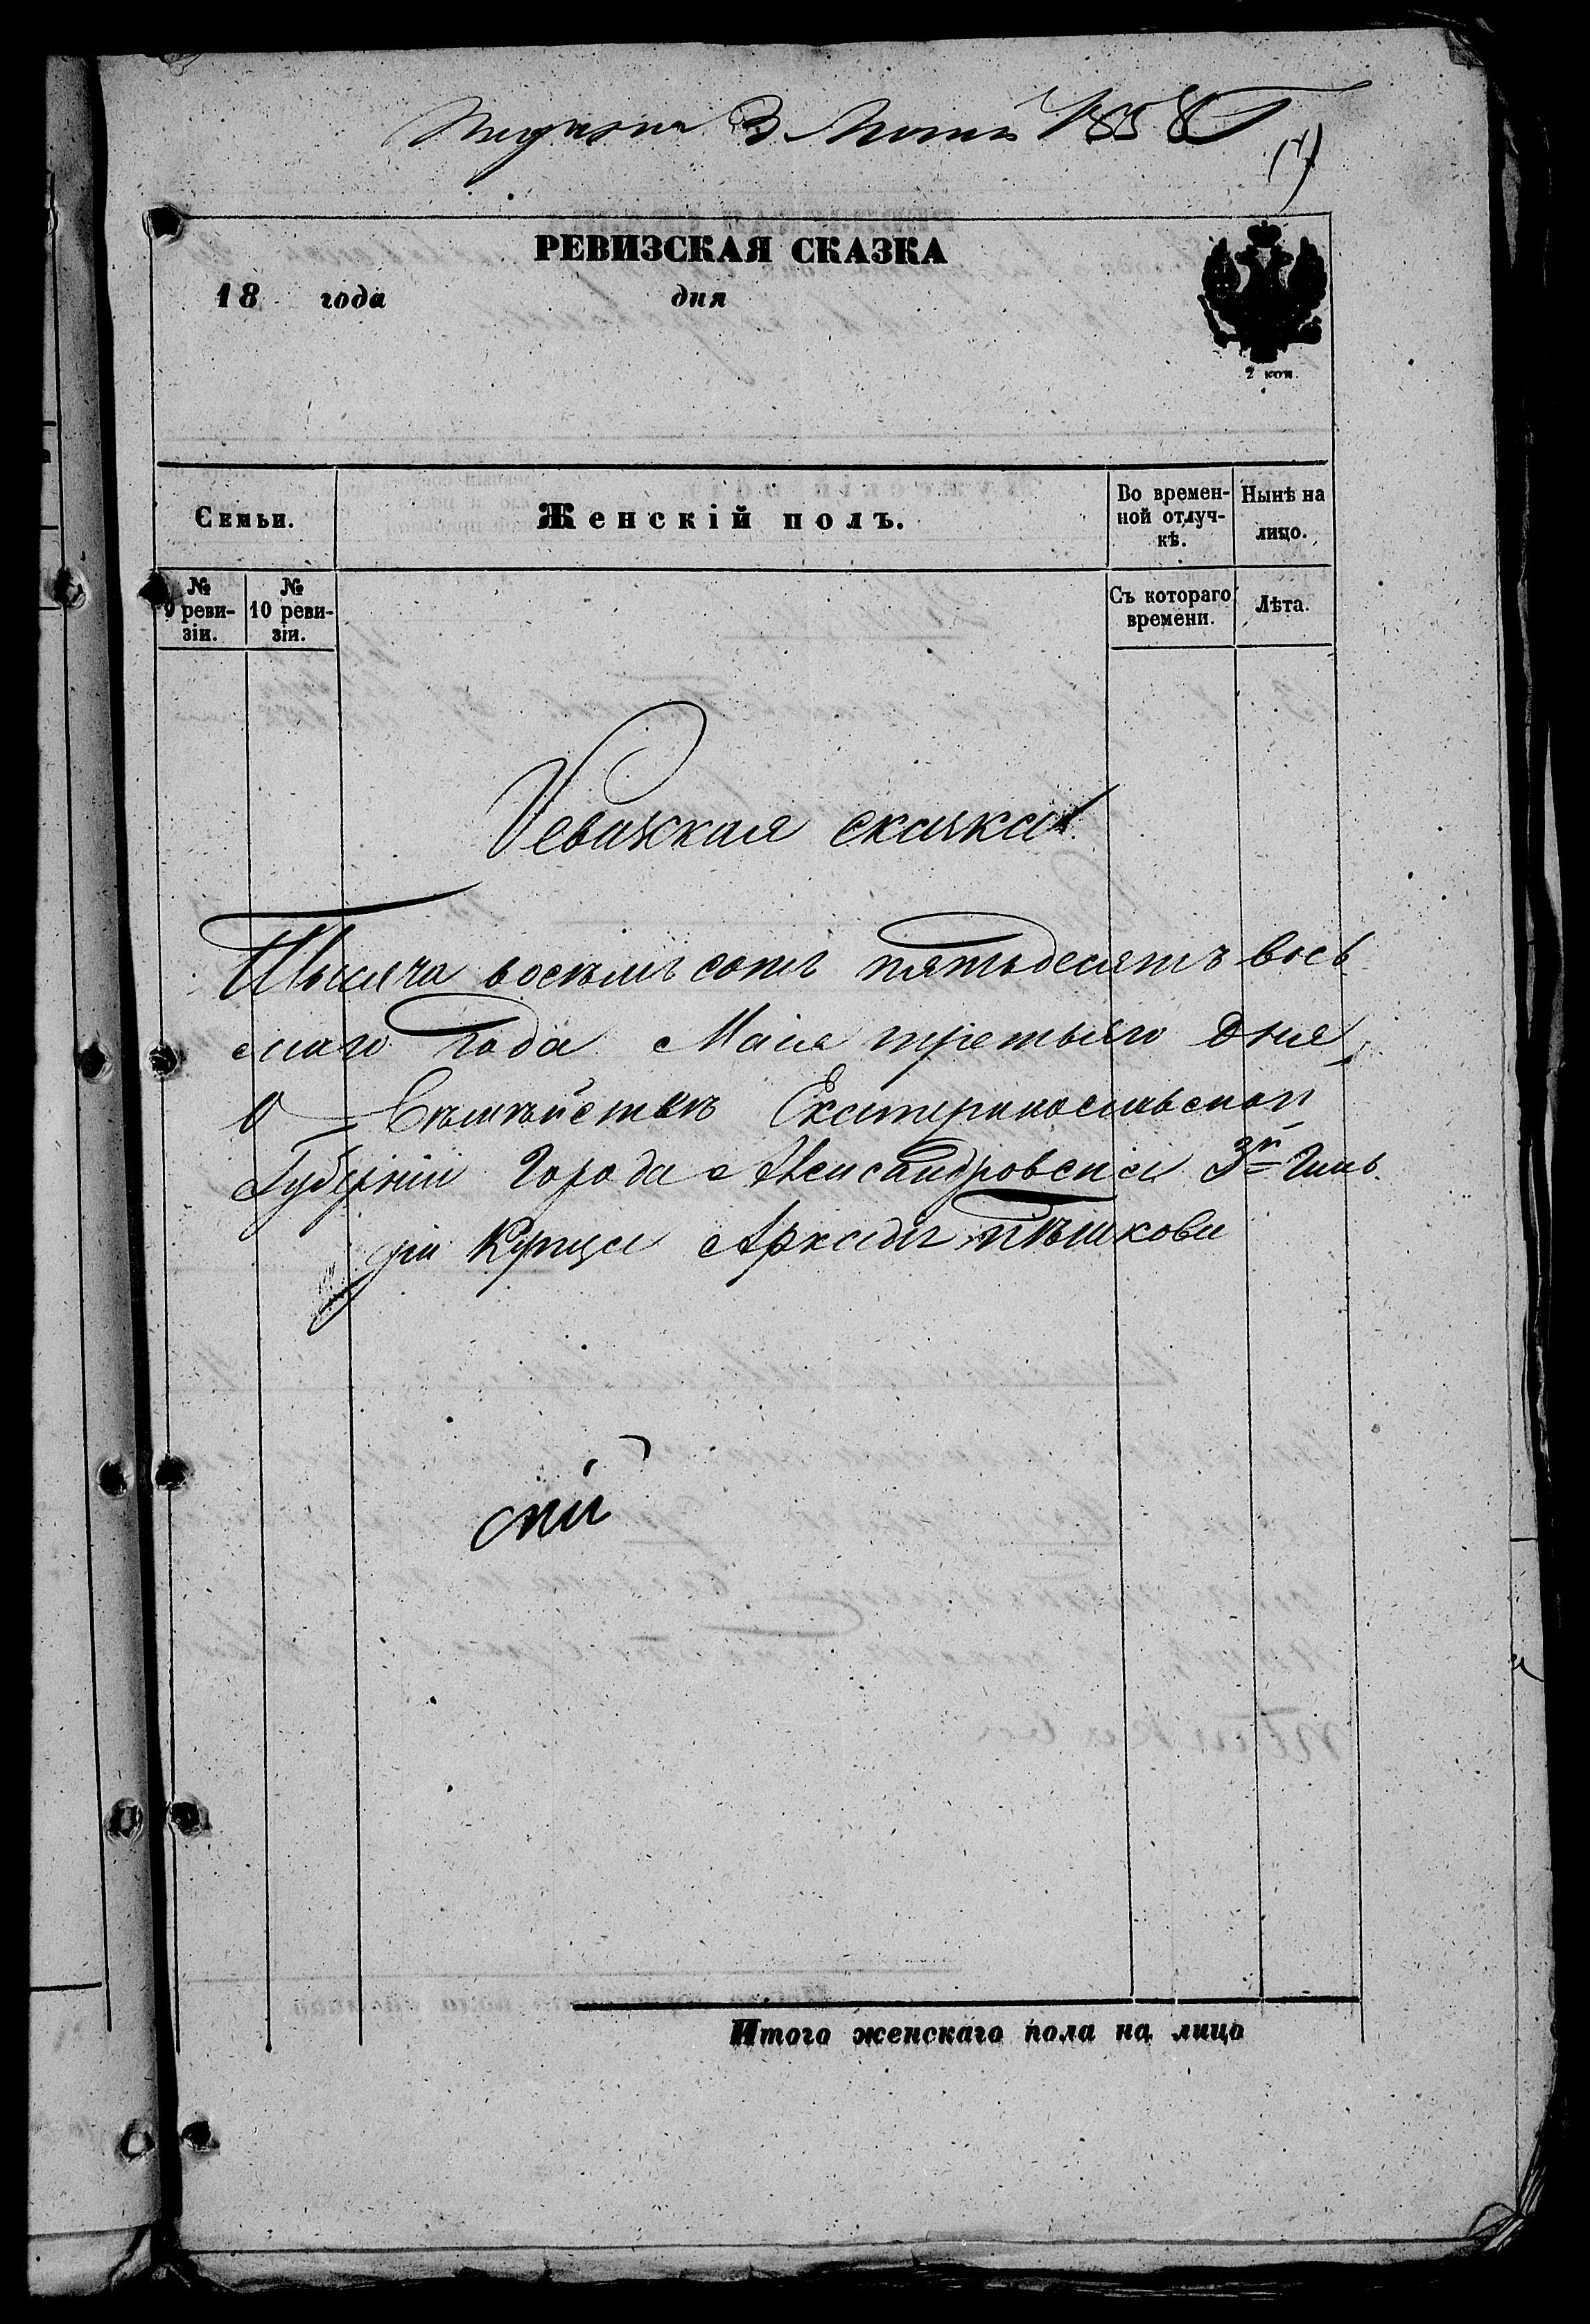 3 1858
РЕВИЗСКАЯ СКАЗКА
18 года дня
2 коп.
Семьи.
Женскій полъ.
Во времен-
ной отлуч-
кѣ.
Нынѣ на
лицо.
№
9 реви-
зіи.
№
10 реви-
зіи.
Съ котораго
времени.
Лѣта.
Ревизская сказка
Тысяча восемь сотъ пятьдесятъ вось
маго года Маія третьяго дня
О Сѣмѣйствѣ Екатеринославской
Губерніи Города Александровска 3й Гиль
діи Купца Аркадія Пѣшкова
Итого женскаго пола на лицо